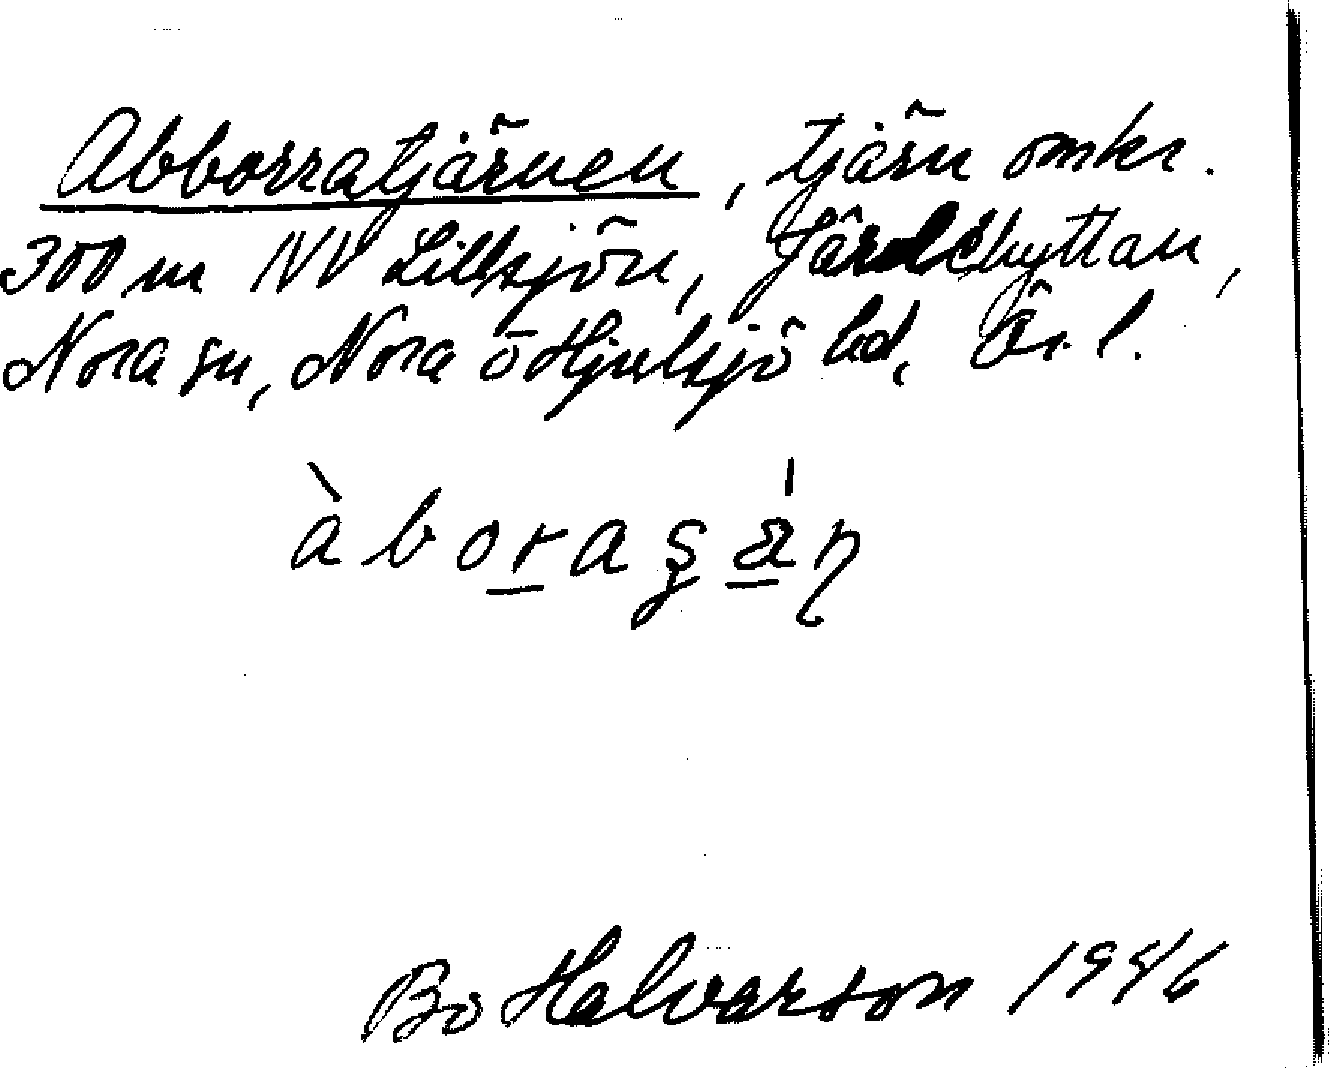 Abborratjärnen, tjärn omkr.
300 m NV Lillsjön, Järdehyttan,
Nora sn, Nora o Hjulsjö bd, Ör. l.
àboraʂä́ɳ
Bo Halvarson 1946